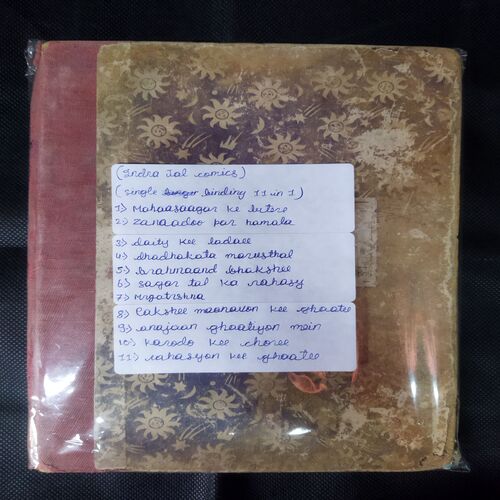 (Indra Jal comics)
(single binding 11 in 1)
1) Mahaasaagar ke lutere
2) Zanaadoo par hamala
3) daity kee ladaee
4) bhadhakata marusthal
5) brahmaand bhakshee
6) sagar tal ka rahasy
7) Mrgatrshna
8) Pakshee maanavon kee ghaatee
9) anajaan ghaatiyon mein
10) karodo kee choree
11) rahasyon kee ghaatee